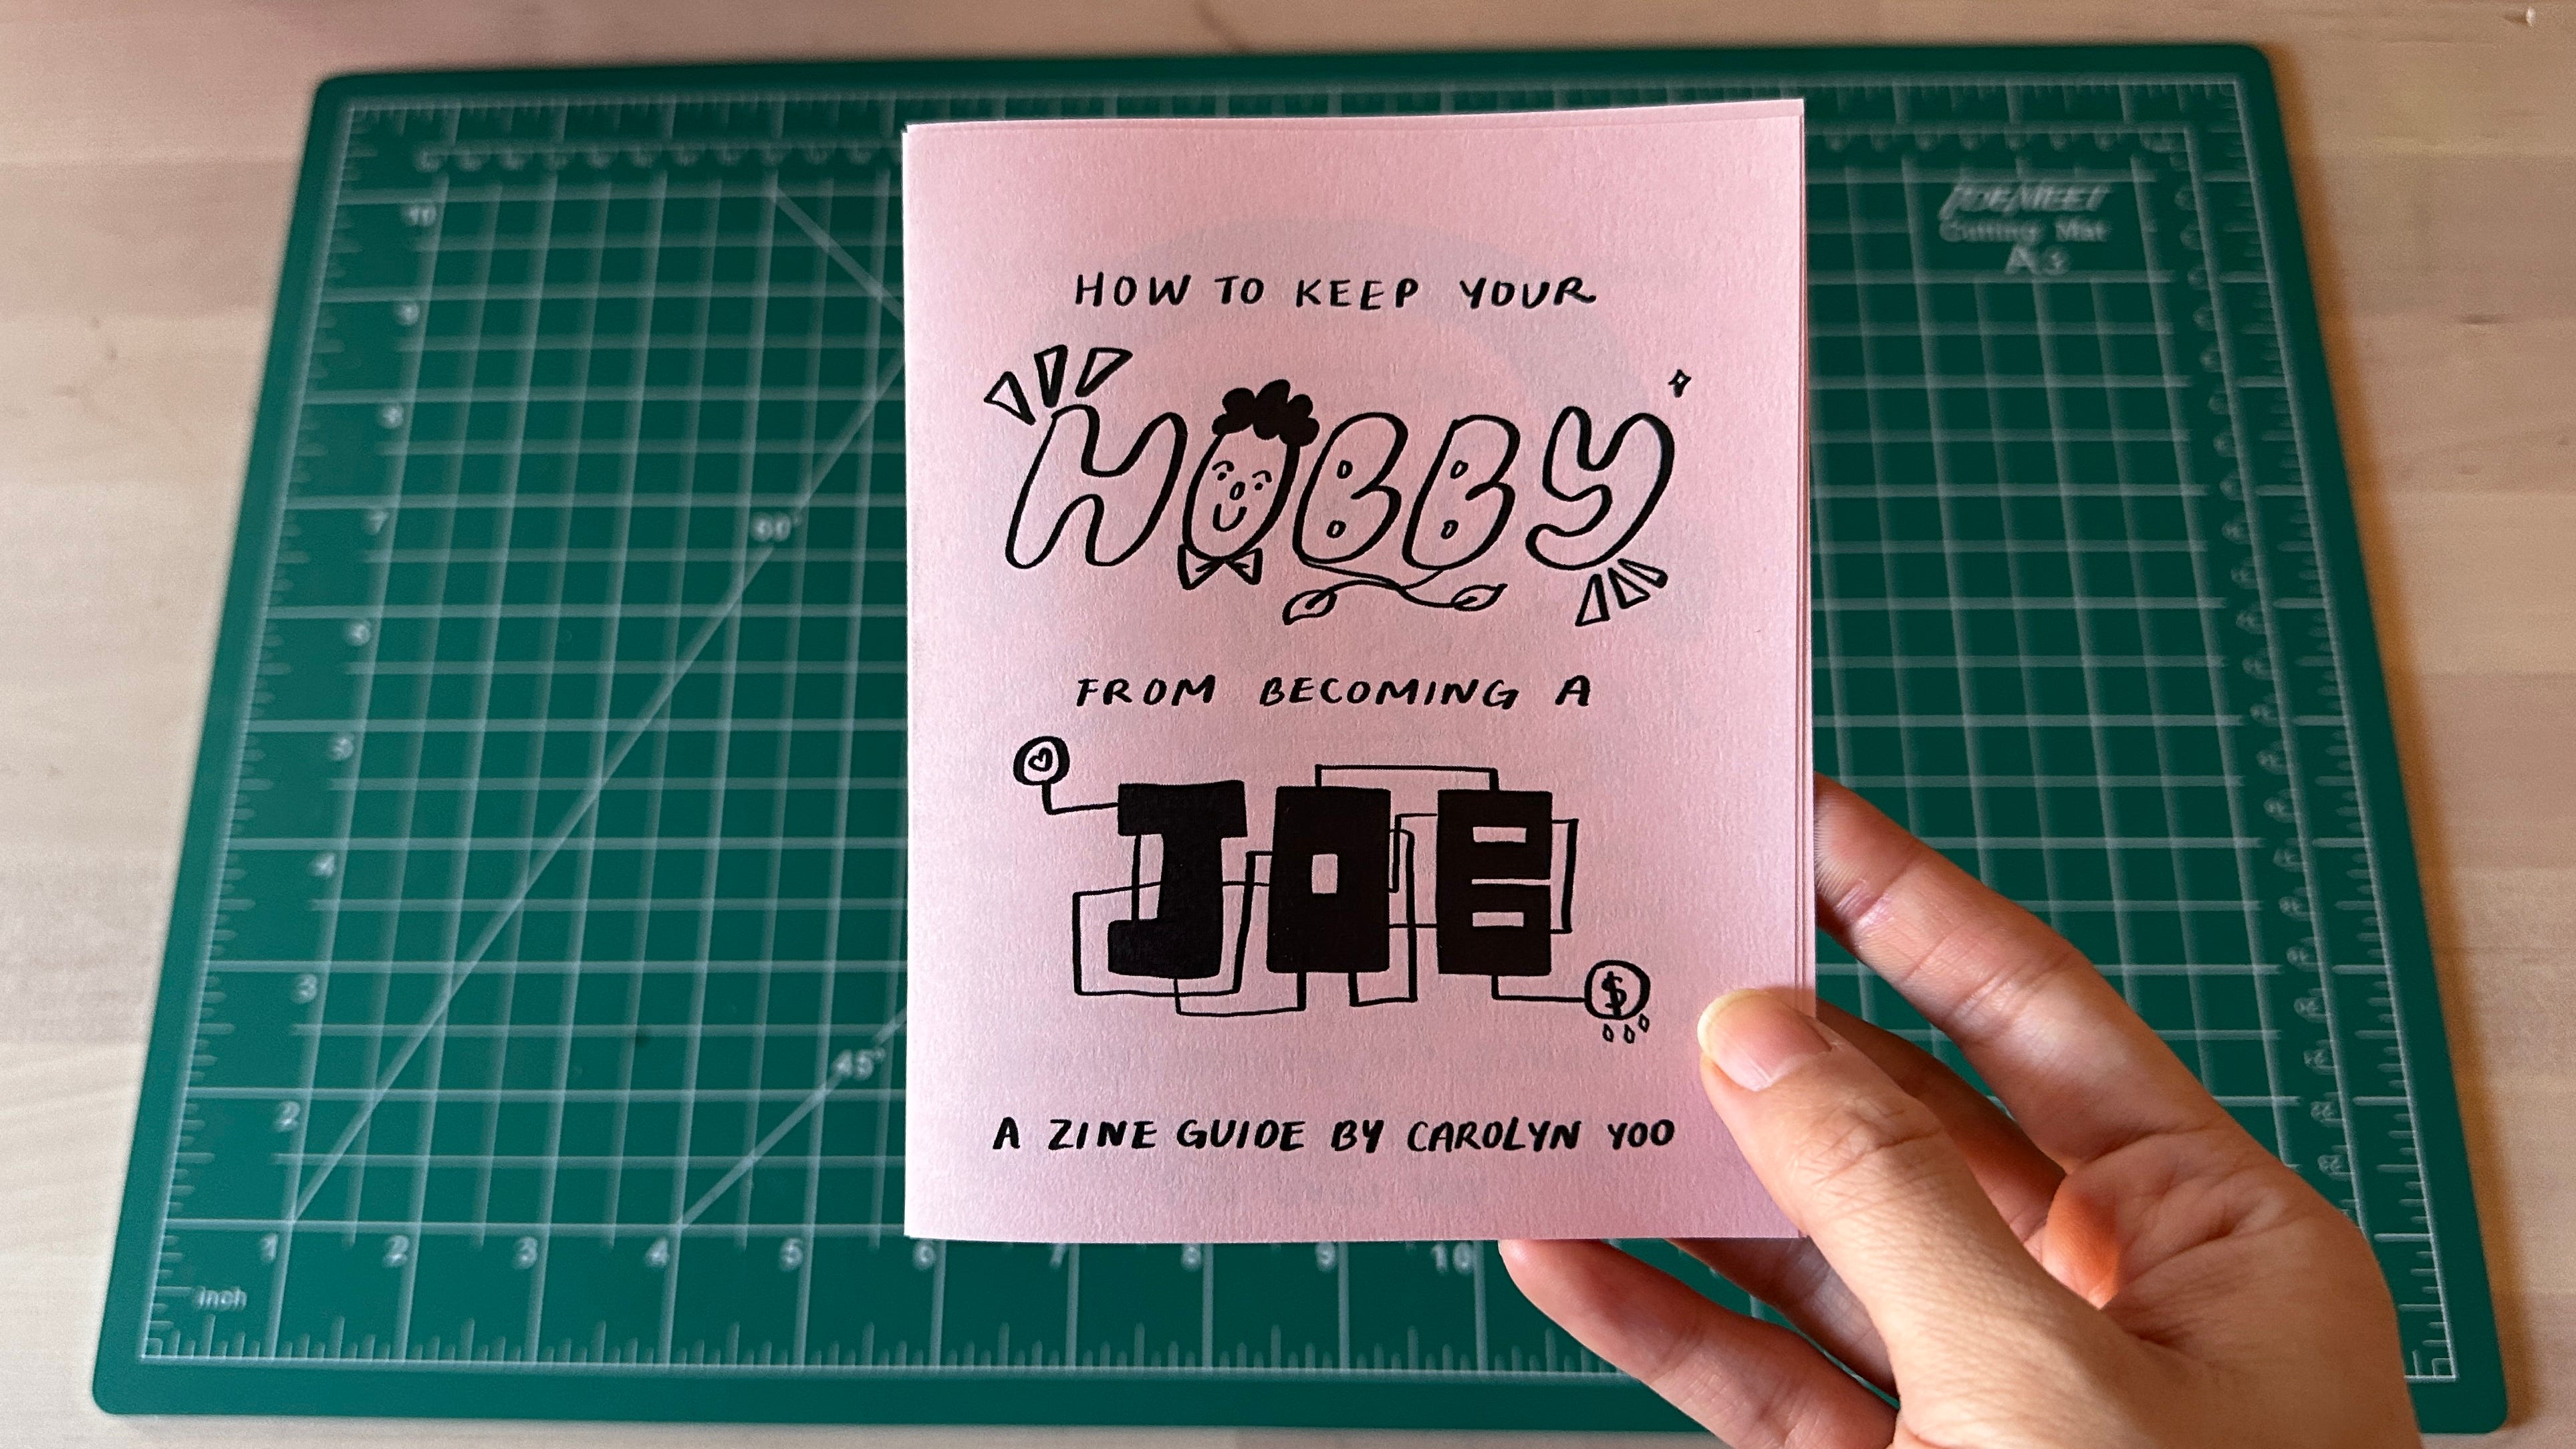 HOW TO KEEP YOUR
HOBBY
FROM BECOMING A
JOB
$
A ZINE GUIDE BY CAROLYN YOO
Cutting Mat
A3
10
9
8
7
6
5
4
3
2
60°
45°
1 2 3 4 5 6 7 8 9 10
inch